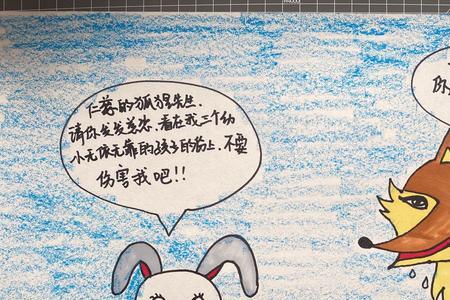 仁慈的狐狸先生.
请你发发慈悲.看在我三个幼
小无依无靠的孩子的份上.不要
伤害我吧!!
你